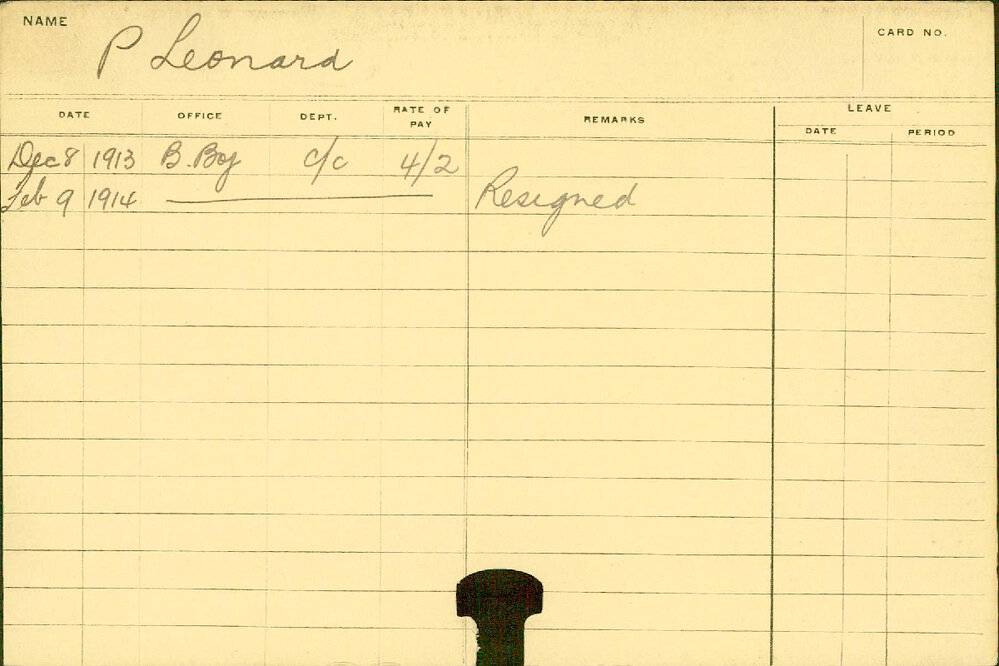 NAME
P Leonard
CARD NO.
DATE OFFICE DEPT. RATE OF PAY REMARKS LEAVE
DATE PERIOD
Dec 8 1913 B. Boy c/c 4/2
Feb 9 1914 Resigned